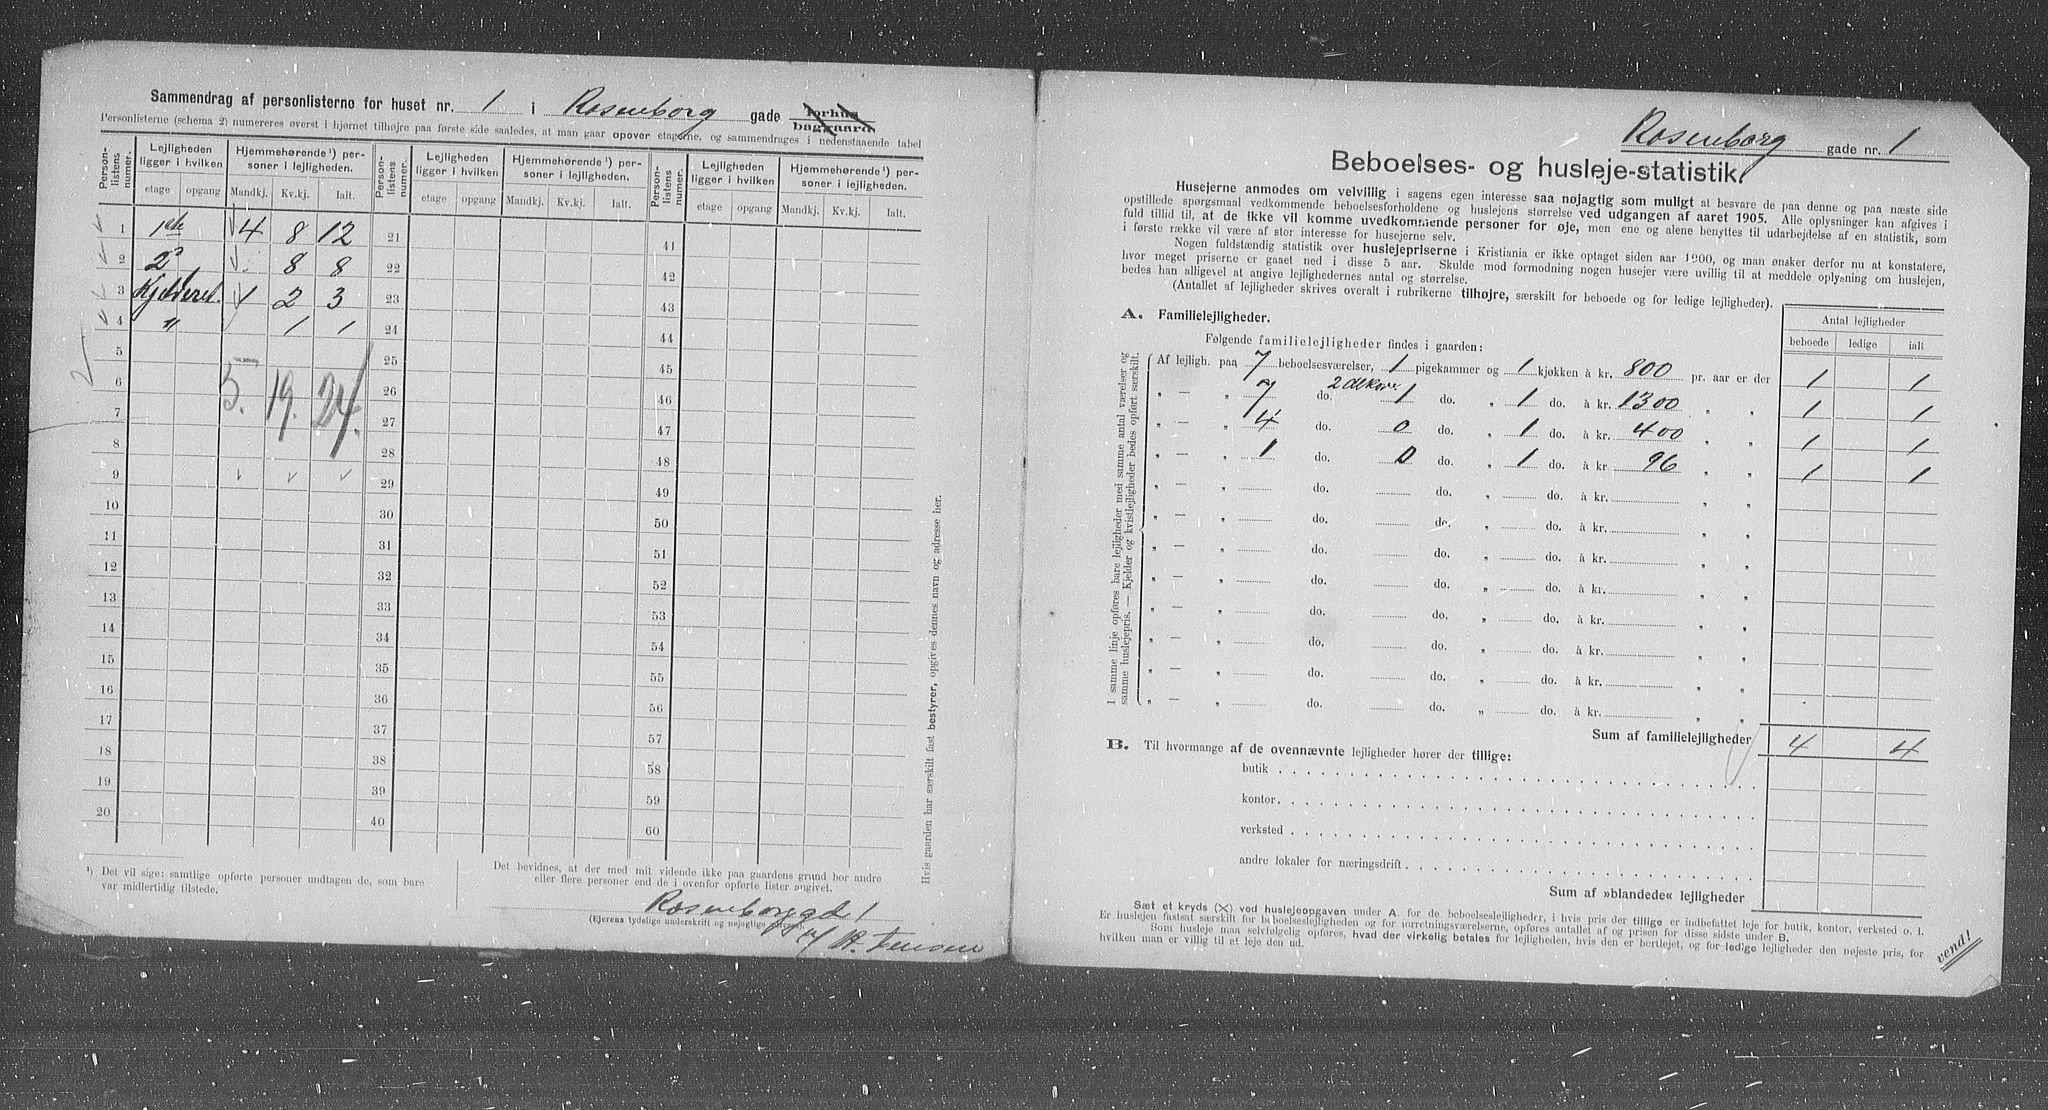 Sammendrag af personlisterne for huset nr. 1 i Rosenborg gade forhus baggaard
Personlisterne (schema 2) numereres øverst i hjørnet tilhøjre paa første side saaledes, at man gaar opover etagerne, og sammendrages i nedenstaaende tabel
Personlistens nummer. Lejligheden ligger i hvilken Hjemmehørende¹) personer i lejligheden. Personlistens nummer. Lejligheden ligger i hvilken Hjemmehørende¹) personer i lejligheden. Personlistens nummer. Lejligheden ligger i hvilken Hjemmehørende¹) personer i lejligheden.
etage opgang Mandkj. Kv.kj. Ialt. etage opgang Mandkj. Kv.kj. Ialt. etage opgang Mandkj. Kv.kj. Ialt.
1 1ste 4 8 12 21 41
2 2 8 8 22 42
3 Kjelderet. 1 2 3 23 43
4 " 1 1 24 44
5 25 45
6 5. 19. 24. 26 46
7 27 47
8 28 48
9 29 49
10 30 50
11 31 51
12 32 52
13 33 53
14 34 54
15 35 55
16 36 56
17 37 57
18 38 58
19 39 59
20 40 60
¹) Det vil sige: samtlige opførte personer undtagen de, som bare
var midlertidig tilstede.
Det bevidnes, at der med mit vidende ikke paa gaardens grund bor andre
eller flere personer end de i ovenfor opførte lister angivet.
Rosenborggd 1
(Ejerens tydelige underskrift og nøjagtige adresse).
Jensen
Hvis gaarden har særskilt fast bestyrer, opgives dennes navn og adresse her.
Rosenborg gade nr. 1
Beboelses- og husleje-statistik.
Husejerne anmodes om velvillig i sagens egen interesse saa nøjagtig som muligt at besvare de paa denne og paa næste side
opstillede spørgsmaal vedkommende beboelsesforholdene og huslejens størrelse ved udgangen af aaret 1905. Alle oplysninger kan afgives i
fuld tillid til, at de ikke vil komme uvedkommende personer for øje, men ene og alene benyttes til udarbejdelse af en statistik, som
i første række vil være af stor interesse for husejerne selv.
Nogen fuldstændig statistik over huslejepriserne i Kristiania er ikke optaget siden aar 1900, og man ønsker derfor nu at konstatere,
hvor meget priserne er gaaet ned i disse 5 aar. Skulde mod formodning nogen husejer være uvillig til at meddele oplysning om huslejen,
bedes han alligevel at angive lejlighedernes antal og størrelse.
(Antallet af lejligheder skrives overalt i rubrikerne tilhøjre, særskilt for beboede og for ledige lejligheder).
A. Familielejligheder.
Antal lejligheder
Følgende familielejligheder findes i gaarden:
beboede ledige ialt
I samme linje opføres bare lejligheder med samme antal værelser og
samme huslejepris. — Kjelder og kvistlejligheder bedes opført særskilt.
Af lejligh. paa 7 beboelsesværelser, 1 pigekammer og 1 kjøkken à kr. 800 pr. aar er der 1 1
" — " 7 do. 1 do. " 1 do. à kr. 1300 " " 1 1
" — " 4 do. 0 do. " 1 do. à kr. 400 " " 1 1
" — " 1 do. 0 do. " 1 do. à kr. 96 " " 1 1
" — " do. do. " do. à kr. " "
" — " do. do. " do. à kr. " "
" — " do. do. " do. à kr. " "
" — " do. do. " do. à kr. " "
" — " do. do. " do. à kr. " "
" — " do. do. " do. à kr. " "
" — " do. do. " do. à kr. " "
" — " do. do. " do. à kr. " "
Sum af familielejligheder 4 4
B. Til hvormange af de ovennævnte lejligheder hører der tillige:
butik
kontor
verksted
andre lokaler for næringsdrift
Sum af »blandede« lejligheder
Sæt et kryds (X) ved huslejeopgaven under A. for de beboelseslejligheder, i hvis pris der tillige er indbefattet leje for butik, kontor, verksted o. l.
Er huslejen fastsat særskilt for beboelseslejligheden og for forretningsværelserne, opføres antallet af og prisen for disse sidste under B.
Som husleje maa selvfølgelig opføres, hvad der virkelig betales for lejligheden, hvis den er bortlejet, og for ledige lejligheder den nøjeste pris, for
hvilken man er villig til at leje den ud.
vend!